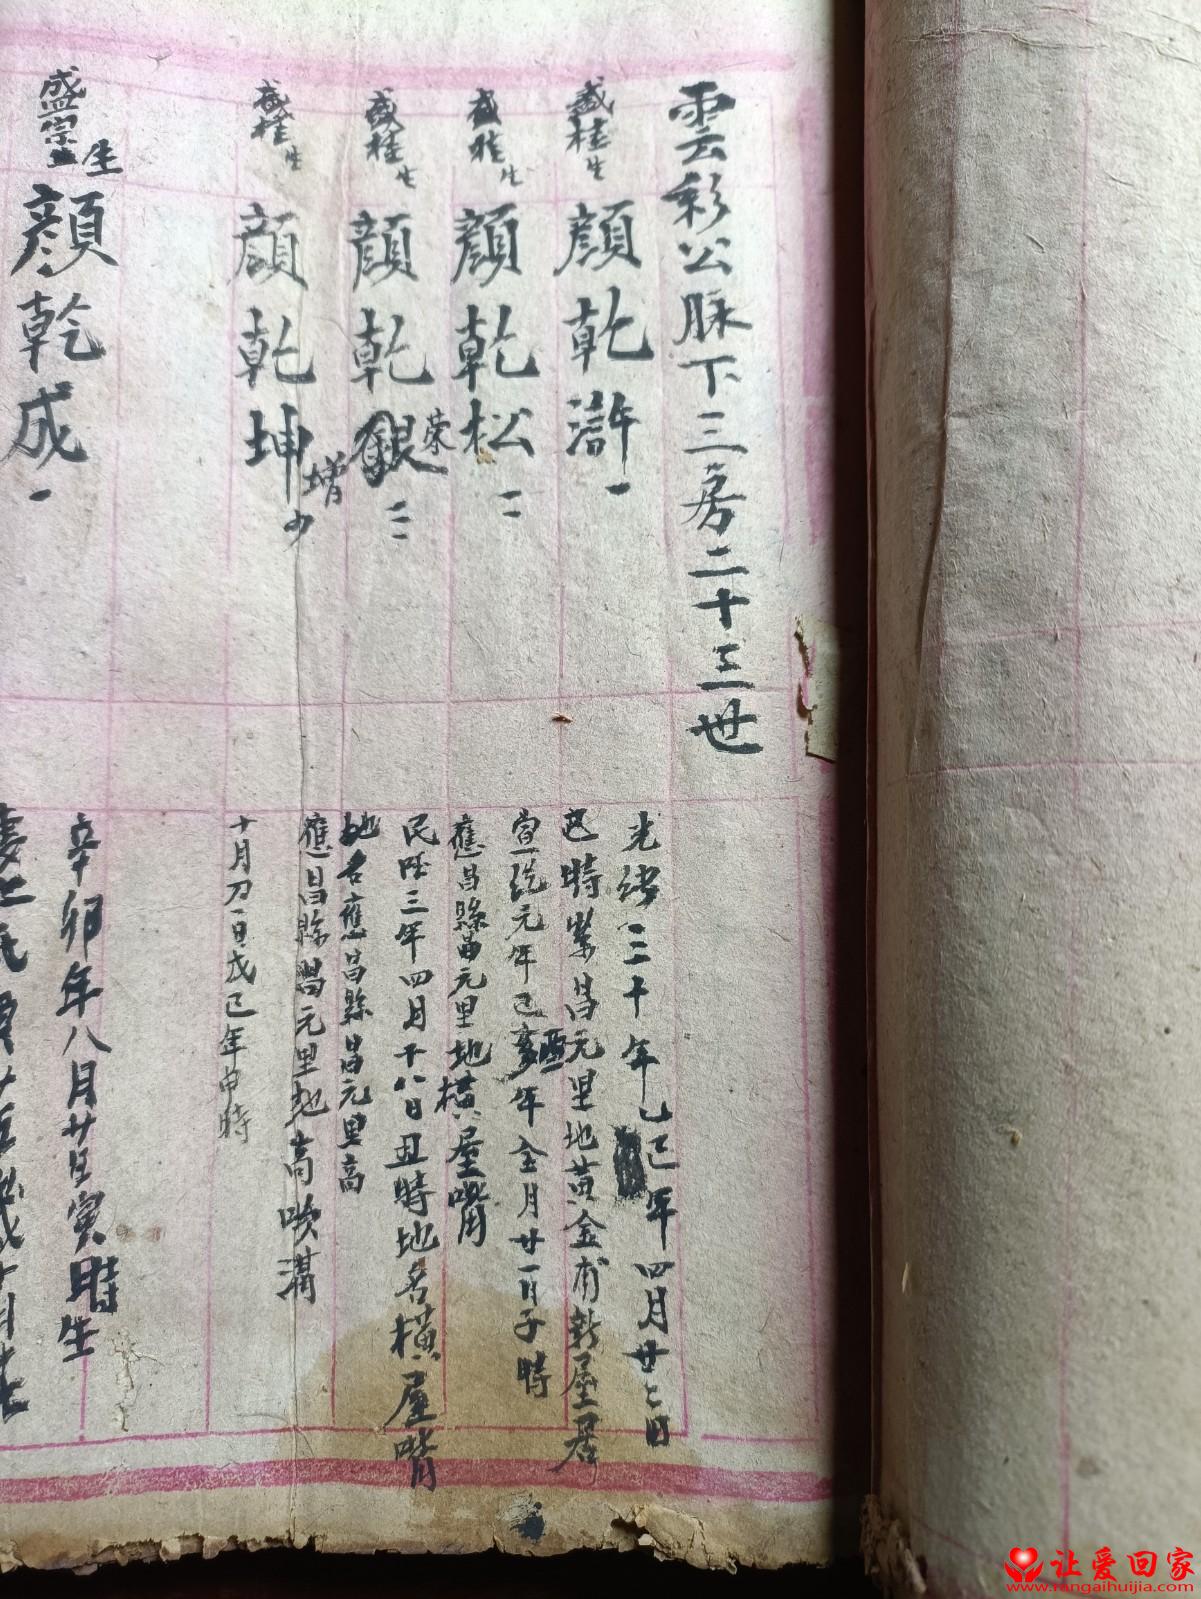 雲彩公脉下三房二十三世
盛桂生 顔乾滸一
盛桂生 顔乾松二
盛桂生 顔乾銀三
荣
盛桂生 顔乾坤少
增
盛宗生 顔乾成一
光緒三十年乙巳年四月廿七日
昌元里地黄金甫新屋居
宣统元年己酉年全月廿一日子時
應昌縣昌元里地横屋嘴
民国三年四月十八日丑時地名横屋嘴
地名應昌縣昌元里高
應昌縣昌元里地高
十月初一日戊己年申時
辛卯年八月廿日寅時生
让爱回家
www.rangaihuijia.com